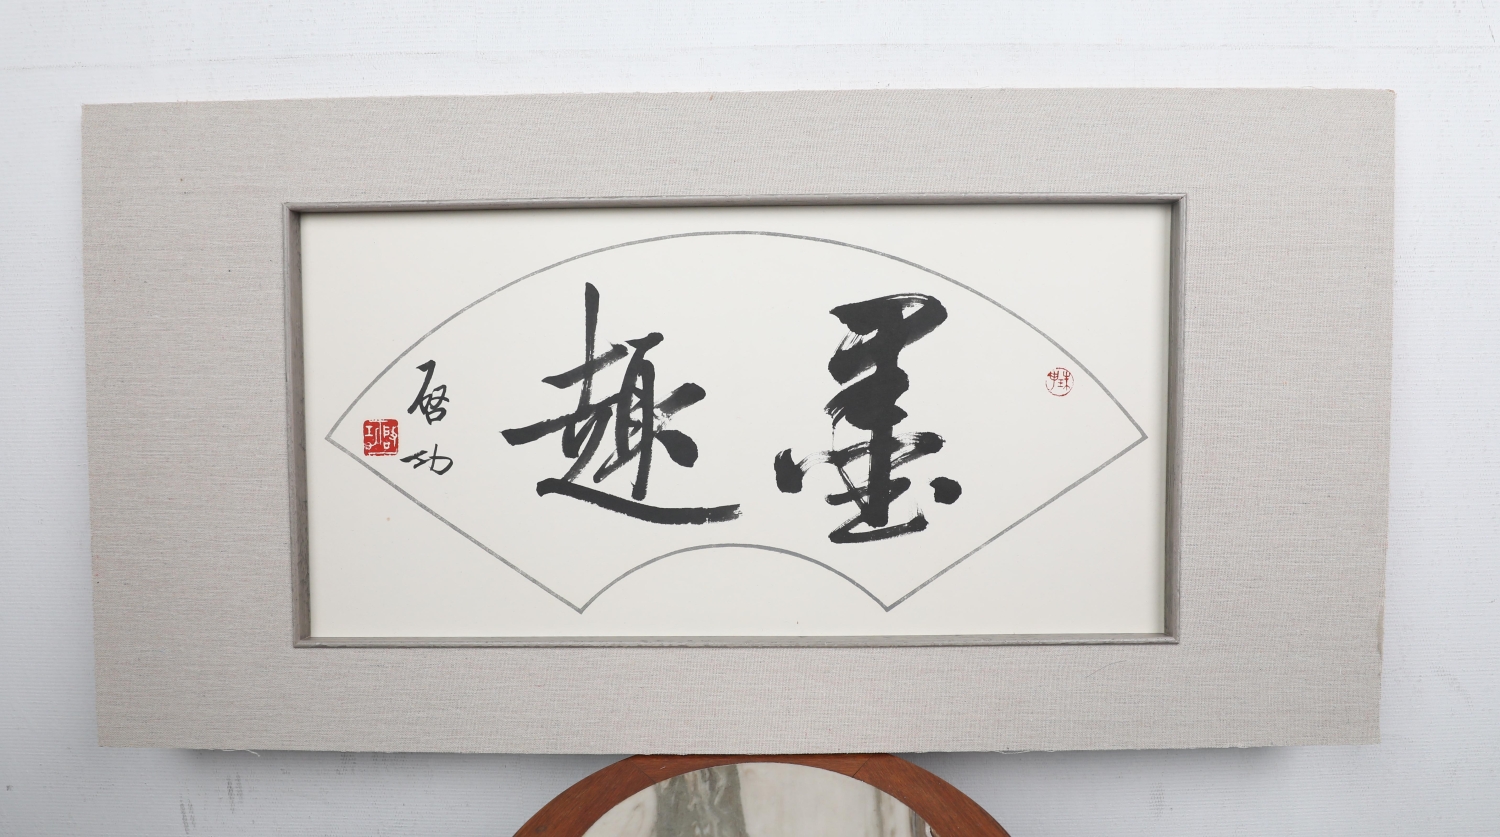 墨趣
启功
启功